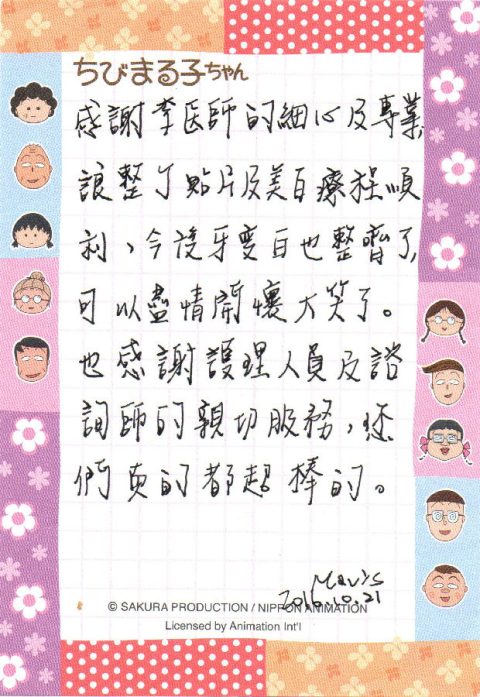 ちびまる子ちゃん
感謝李医師的細心及專業
讓整个貼片及美白療程順
利，今後牙变白也整齊了，
可以盡情開懷大笑了。
也感謝護理人員及諮
詢師的親切服務，您
們真的都超棒的。
Mavis
2016.10.21
© SAKURA PRODUCTION / NIPPON ANIMATION
Licensed by Animation Int'l